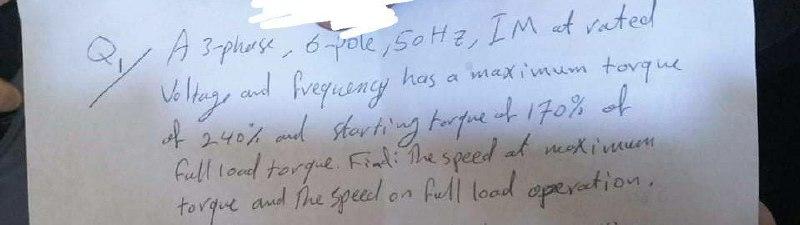 Q1/ A 3-phase, 6-pole, 50Hz, IM at rated
Voltage and frequency has a maximum torque
of 240% and starting torque of 170% of
full load torque. Find: The speed at maximum
torque and The speed on full load operation.